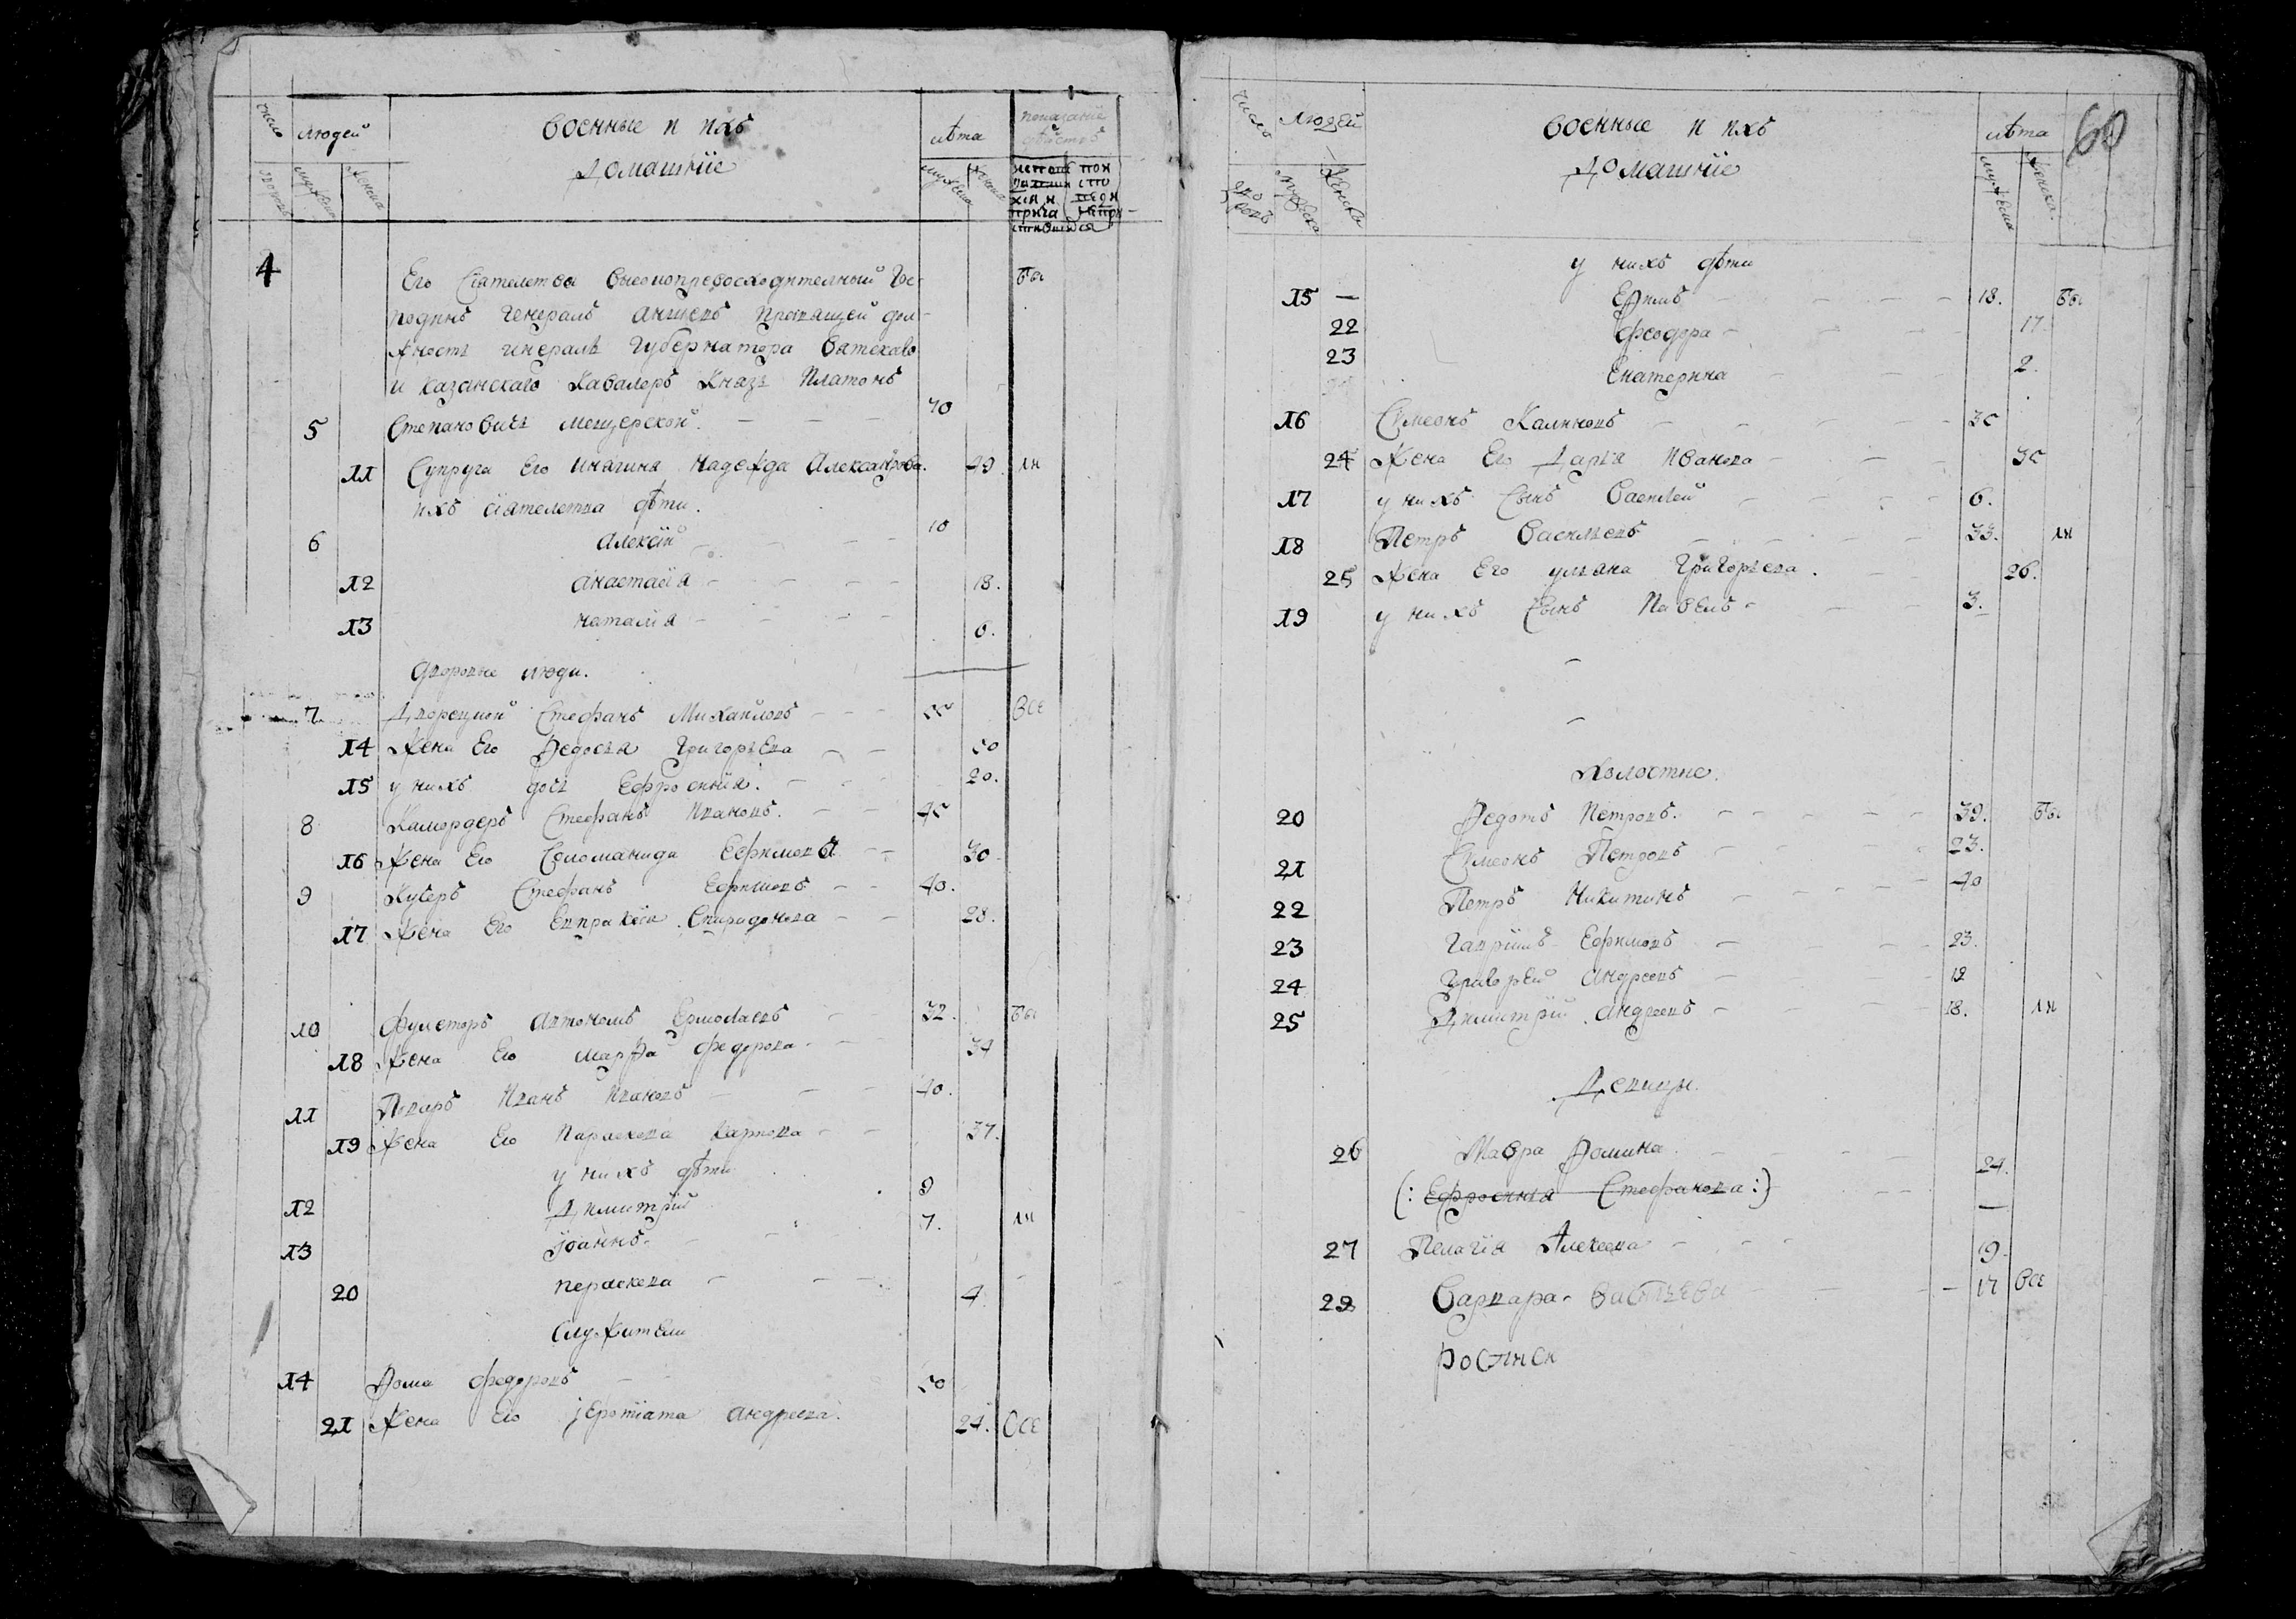 число людей военные и ихъ лѣта показанiе
дворовъ мужеска женска домашнiе мужеска женска
4 Его Сiятелства высокопревосходителный Гос- бы
подинъ Генералъ аншевъ правящей дол-
жность генералъ Губернатора вятскаго
и казанскаго Кавалеръ Князь Платонъ
5 Степановичь мещерской. 70
11 Супруга Его княгиня Надежда Александрова. 49. ли
ихъ сiятелства дѣти.
6 Алексiй 10
12 анастасiя 18.
13 наталiя 6.
дворовые люди.
7 Дворецкой Стефанъ Михайловъ 55 все
14 Жена Его Ѳедосья Григорьева 50
15 у нихъ дочь Ефросинiя. 20.
8 Камордеръ Стефанъ Ивановъ. 45
16 Жена Его Соломанида Ефимова 30
9 Кучеръ Стефанъ Ефимовъ 40.
17 Жена Его Евпраксiя Спиридонова 28.
10 Фулеторъ автономъ Ермолаевъ 32. бы
18 Жена Его марѳа федорова 34
11 Поваръ Иванъ Ивановъ 40.
19 Жена Его Парасковa Карпова 37.
у нихъ дѣти
12 Димитрiй 9
13 Iоаннъ 7. ли
20 параскева 4.
служители
14 Ѳома федоровъ 50
21 Жена Его андреева. 24. все
60
число людей военные и ихъ лѣта
дворовъ мужеска женска домашнiе мужеска женска
у нихъ дѣти
15 — Ефимъ 18. бы
22 феодора 17.
23 Екатерина 2.
16 Симеонъ Калиновъ 35
24 Жена Его Дарья Иванова 35
17 у нихъ сынъ Василей 6.
18 Петръ Васильевъ 33. ли
25 Жена Его ульяна Григорьева. 26.
19 у нихъ сынъ Павелъ 3.
Холостые.
20 Ѳедотъ Петровъ. 39. бы
21 Симеонъ Петровъ 23.
22 Петръ Никитинъ 40
23 Гаврiилъ Ефимовъ 23.
24 Григорей андреевъ 19
25 Димитрiй андреевъ 18. ли
Девицы.
26 Мавра Ѳомина 24.
(: Ефросинья Стефанова :) —
27 Пелагiя Алексеева 19.
28 Варвара 17 все